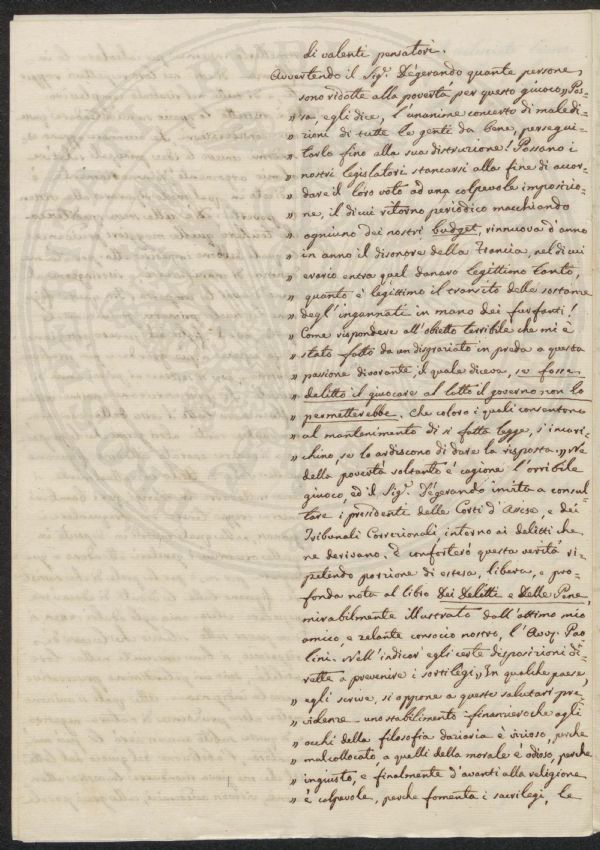 di valenti pensatori.
Avvertendo il Sig.r Dégerando quante persone,
sono ridotte alla povertà per questo giuoco „ Pos-
„ sa, egli dice, l'unanime concerto di maledi-
„ zioni di tutte le genti da bene, persegui-
„ tarlo fino alla sua distruzione! Possano i
„ nostri legislatori stancarsi alla fine di accor-
„ dare il loro voto ad una colpevole imposizio-
„ ne, il di cui ritorno periodico macchiando
„ ogniuno dei nostri budget, rinnuova d'anno
„ in anno il disonore della Francia, nel di cui
„ erario entra quel danaro legittimo tanto,
„ quanto è legittimo il transito delle sostanze
„ degl'ingannati in mano dei furfanti!
„ Come rispondere all'obietto terribile che mi è
„ stato fatto da un disgraziato in preda a questa
„ passione divorante, il quale diceva, se fosse
„ delitto il giuocare al lotto il governo non lo
„ permetterebbe. Che coloro i quali consentono
„ al mantenimento di si fatta legge, s'incari-
„ chino, se lo ardiscono di dare la risposta. „ Ne
della povertà soltanto è cagione l'orribile
giuoco, ed il Sig.r Dégerando invita a consul-
tare i presidenti delle Corti d'Assise, e dei
Tribunali Correzionali, intorno ai delitti che
ne derivano. E conforterò questa verità ri-
petendo porzione di estesa, libera, e pro-
fonda nota al libro Dei Delitti e Delle Pene,
mirabilmente illustrato dall'ottimo mio
amico, e zelante consocio nostro, l'Avv. Pao
lini. Nell'indicar egli certe disposizioni di-
rette a prevenire i sortilegi „ In qualche paese,
„ egli scrive, si oppone a queste salutari pre-
„ videnze uno stabilimento finanziero che agli
„ occhi della filosofia daziaria è vizioso, perche
„ mal collocato, a quelli della morale è odioso, perche
„ ingiusto, e finalmente d'avanti alla religione
„ è colpevole, perche fomenta i sacrilegi, le